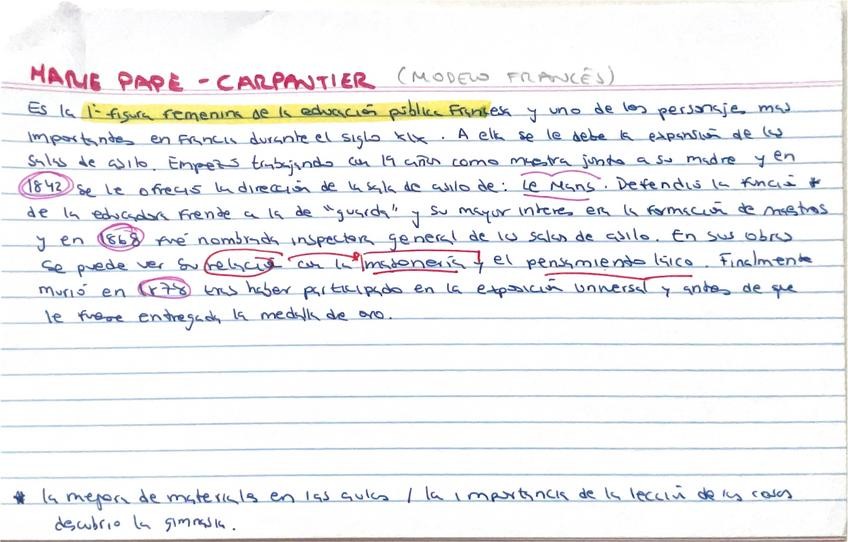 MARIE PAPE - CARPANTIER (MODELO FRANCÉS)
Es la 1ª figura femenina de la educación pública francesa y uno de los personajes mas
importantes en Francia durante el siglo XIX. A ella se le debe la expansión de las
salas de asilo. Empezó trabajando con 19 años como maestra junto a su madre y en
1842 se le ofreció la dirección de la sala de asilo de: Le Mans. Defendió la función *
de la educadora frente a la de "guarda" y su mayor interes era la formación de maestros
y en 1868 fué nombrada inspectora general de las salas de asilo. En sus obras
se puede ver su relación con la masonería y el pensamiento laico. Finalmente
murió en 1878 tras haber participado en la exposición universal y antes de que
le fuese entregada la medalla de oro.
* la mejora de materiales en las aulas / la importancia de la lección de las cosas
descubrio la gimnasia.